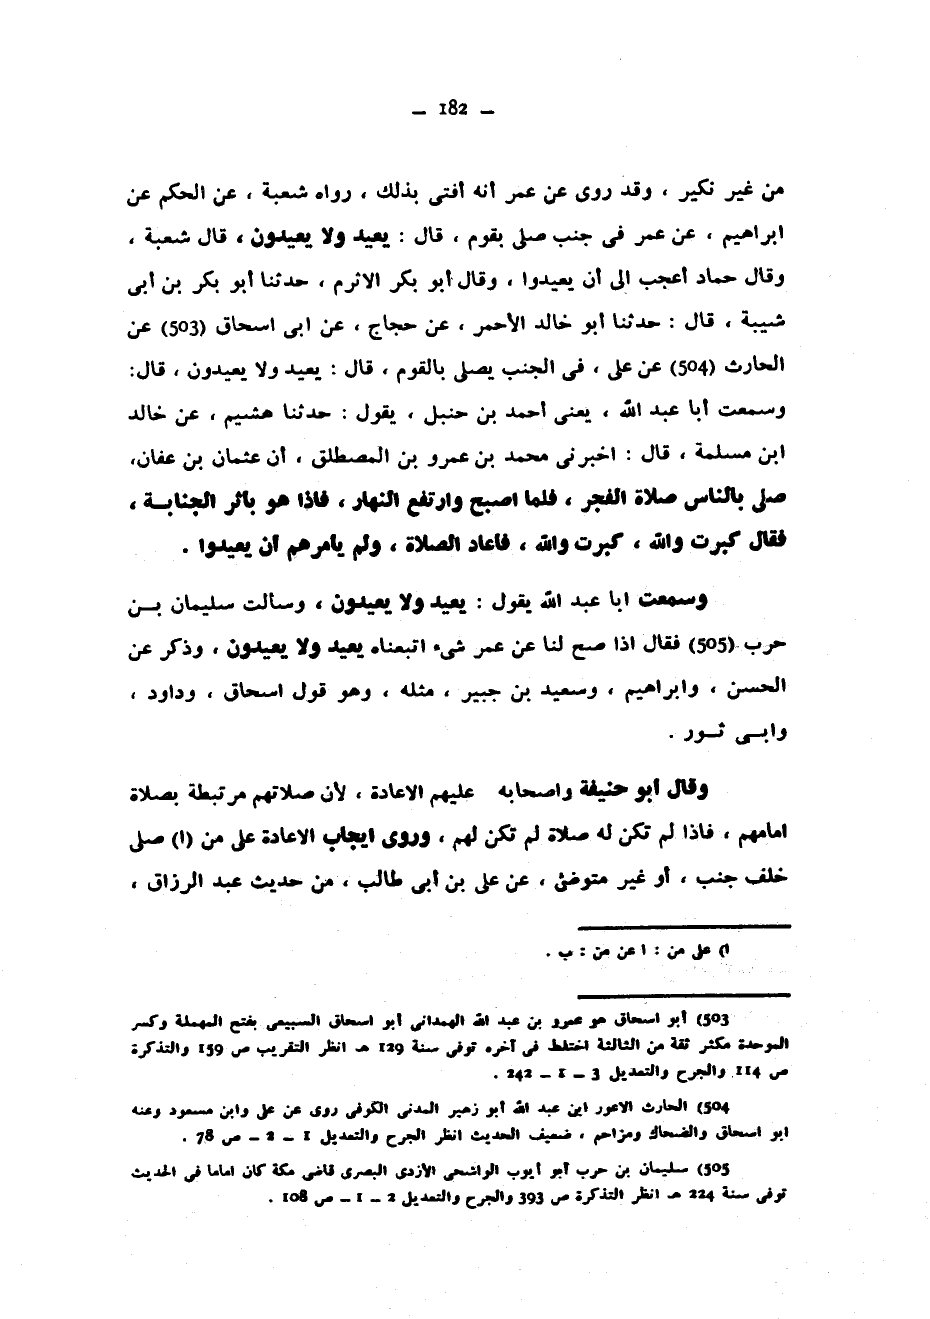 — 182 —
من غير نكير ، وقد روى عن عمر أنه أفتى بذلك ، رواه شعبة ، عن الحكم عن
ابراهيم ، عن عمر فى جنب صلى بقوم ، قال : يعيد ولا يعيدون ، قال شعبة ،
وقال حماد أعجب الى أن يعيدوا ، وقال أبو بكر الاثرم ، حدثنا أبو بكر بن أبى
شيبة ، قال : حدثنا أبو خالد الأحمر ، عن حجاج ، عن ابى اسحاق (503) عن
الحارث (504) عن على ، فى الجنب يصلى بالقوم ، قال : يعيد ولا يعيدون ، قال:
وسمعت أبا عبد الله ، يعنى أحمد بن حنبل ، يقول : حدثنا هشيم ، عن خالد
ابن مسلمة ، قال : اخبرنى محمد بن عمرو بن المصطلق ، أن عثمان بن عفان،
صلى بالناس صلاة الفجر ، فلما اصبح وارتفع النهار ، فاذا هو بأثر الجنابــة ،
فقال كبرت والله ، كبرت والله ، فأعاد الصلاة ، ولم يأمرهم أن يعيدوا .
وسمعت ابا عبد الله يقول : يعيد ولا يعيدون ، وسألت سليمان بــن
حرب (505) فقال اذا صح لنا عن عمر شىء اتبعناه يعيد ولا يعيدون ، وذكر عن
الحسن ، وابراهيم ، وسعيد بن جبير ، مثله ، وهو قول اسحاق ، وداود ،
وابــى ثــور .
وقال أبو حنيفة واصحابه عليهم الاعادة ، لأن صلاتهم مرتبطة بصلاة
امامهم ، فاذا لم تكن له صلاة لم تكن لهم ، وروى ايجاب الاعادة على من (١) صلى
خلف جنب ، أو غير متوضئ ، عن على بن أبى طالب ، من حديث عبد الرزاق ،
١) على من : ا عن من : ب .
503) أبو اسحاق هو عمرو بن عبد الله الهمدانى أبو اسحاق السبيعى بفتح المهملة وكسر
الموحدة مكثر ثقة من الثالثة اختلط فى آخره توفى سنة 129 هـ انظر التقريب ص 159 والتذكرة
ص 114 والجرح والتعديل 3 – 1 – 242 .
504) الحارث الاعور ابن عبد الله أبو زهير المدنى الكوفى روى عن على وابن مسعود وعنه
ابو اسحاق والضحاك ومزاحم ، ضعيف الحديث انظر الجرح والتعديل 1 – 2 – ص 78 .
505) سليمان بن حرب أبو أيوب الواشحى الأزدى البصرى قاضى مكة كان اماما فى الحديث
توفى سنة 224 هـ انظر التذكرة ص 393 والجرح والتعديل 2 – 1 – ص 108 .